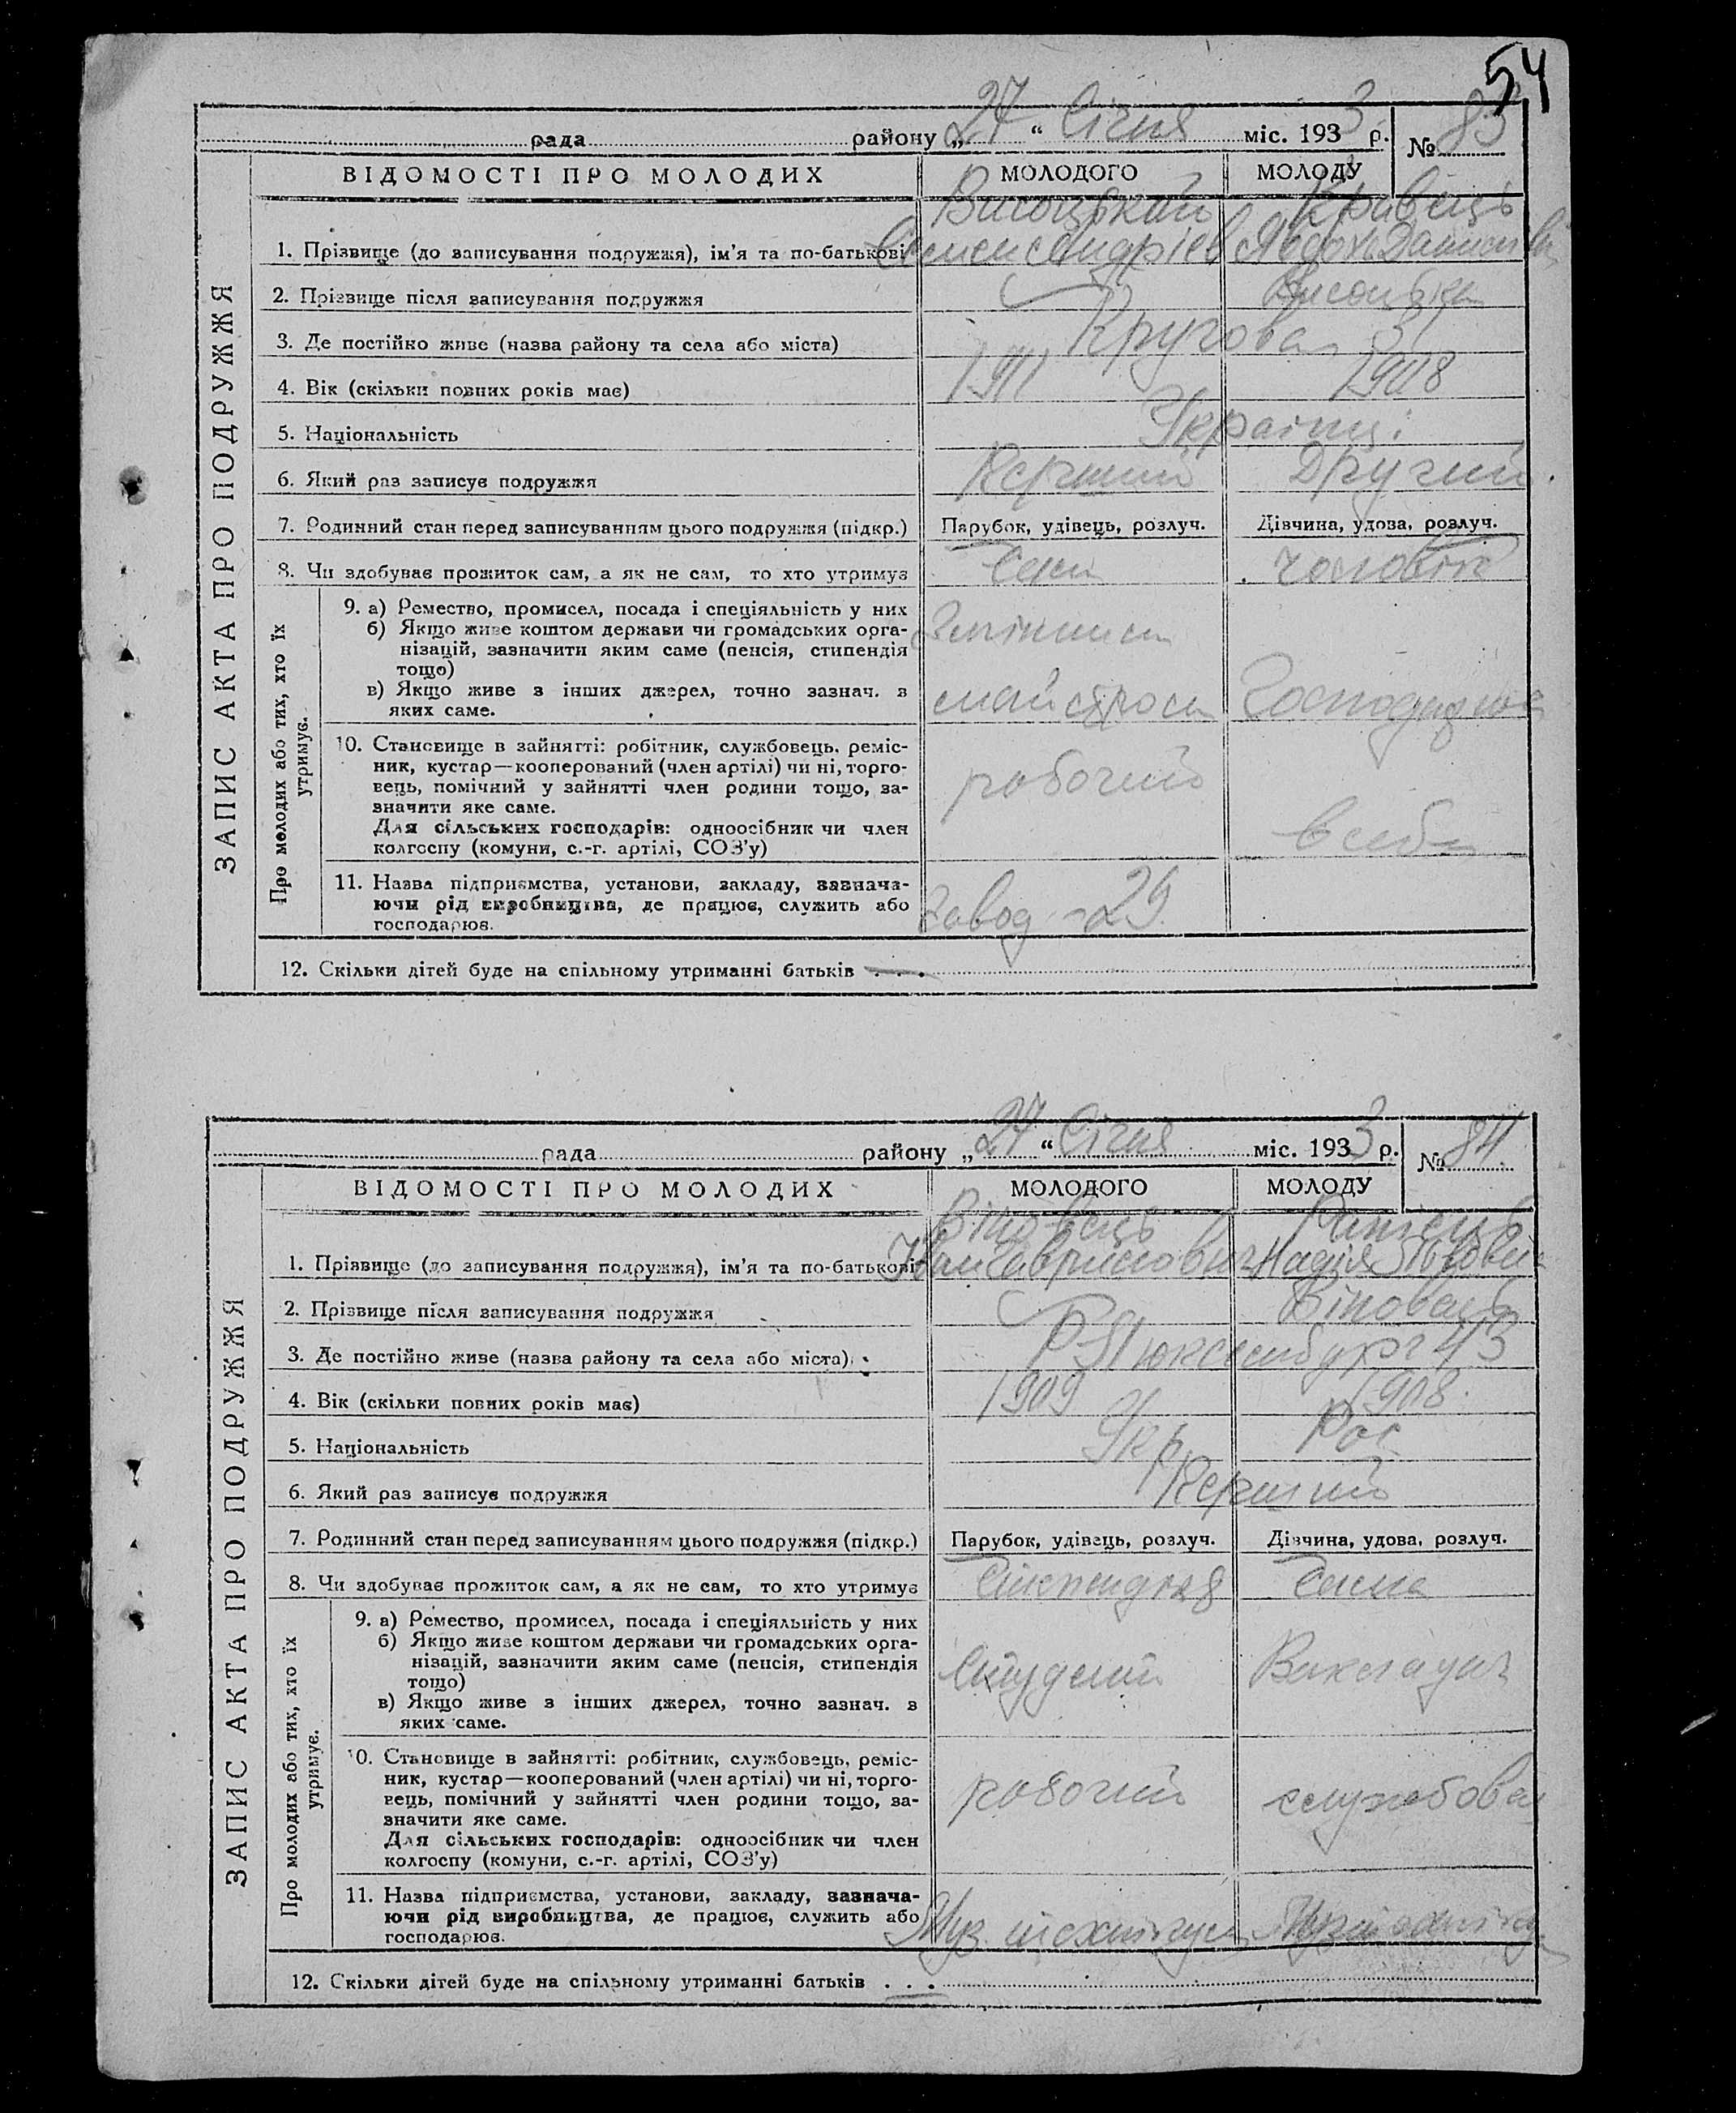 54
рада району „ 27 “ Січня міс. 1933 р. № 83
ВІДОМОСТІ ПРО МОЛОДИХ МОЛОДОГО МОЛОДУ
Висоцький Кравець
1. Прізвище (до записування подружжя), ім'я та по-батькові Семен Андріев Явдоха
2. Прізвище після записування подружжя Висоцька
3. Де постійно живе (назва району та села або міста) Кругова 31
4. Вік (скільки повних років має) 1911 1908
5. Національність Українці
6. Який раз записує подружжя Перший Другий
7. Родинний стан перед записуванням цього подружжя (підкр.) Парубок, удівець, розлуч. Дівчина, удова, розлуч.
8. Чи здобуває прожиток сам, а як не сам, то хто утримує Сам чоловік
9. а) Ремество, промисел, посада і спеціяльність у них
б) Якщо живе коштом держави чи громадських орга-
нізацій, зазначити яким саме (пенсія, стипендія
тощо)
в) Якщо живе з інших джерел, точно зазнач. з майстром
яких саме.
10. Становище в зайнятті: робітник, службовець, реміс-
ник, кустар—кооперований (член артілі) чи ні, торго-
вець, помічний у зайнятті член родини тощо, за- робочий
значити яке саме.
Для сільських господарів: одноосібник чи член
колгоспу (комуни, с.-г. артілі, СОЗ'у)
11. Назва підприємства, установи, закладу, зазнача-
ючи рід виробництва, де працює, служить або завод - 29
господарює.
12. Скільки дітей буде на спільному утриманні батьків . . .
ЗАПИС АКТА ПРО ПОДРУЖЖЯ
Про молодих або тих, хто їх
утримує.
рада району „ 27 “ Січня міс. 1933 р. № 84
ВІДОМОСТІ ПРО МОЛОДИХ МОЛОДОГО МОЛОДУ
Віповець
1. Прізвище (до записування подружжя), ім'я та по-батькові Іван Гаврилович Надія Львовна
2. Прізвище після записування подружжя Віповець
3. Де постійно живе (назва району та села або міста) Р Люксембург 43
4. Вік (скільки повних років має) 1909 1908
5. Національність Укр Рос
6. Який раз записує подружжя Перший
7. Родинний стан перед записуванням цього подружжя (підкр.) Парубок, удівець, розлуч. Дівчина, удова, розлуч.
8. Чи здобуває прожиток сам, а як не сам, то хто утримує Стипендія Сама
9. а) Ремество, промисел, посада і спеціяльність у них
б) Якщо живе коштом держави чи громадських орга-
нізацій, зазначити яким саме (пенсія, стипендія Студент Викладач
тощо)
в) Якщо живе з інших джерел, точно зазнач. з
яких саме.
10. Становище в зайнятті: робітник, службовець, реміс-
ник, кустар—кооперований (член артілі) чи ні, торго-
вець, помічний у зайнятті член родини тощо, за- робочий службова
значити яке саме.
Для сільських господарів: одноосібник чи член
колгоспу (комуни, с.-г. артілі, СОЗ'у)
11. Назва підприємства, установи, закладу, зазнача-
ючи рід виробництва, де працює, служить або Муз. технікум Муз технікум
господарює.
12. Скільки дітей буде на спільному утриманні батьків . . .
ЗАПИС АКТА ПРО ПОДРУЖЖЯ
Про молодих або тих, хто їх
утримує.